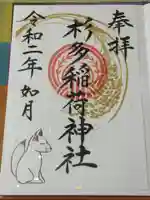 奉拝
杉多稲荷神社
令和二年如月